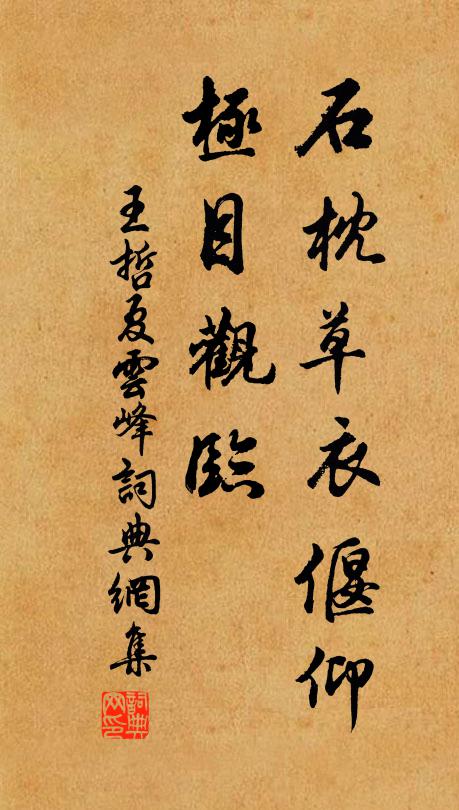 石枕草衣偃仰
極目觀臨
王哲夏雲峰詞典網集
詞典
网印